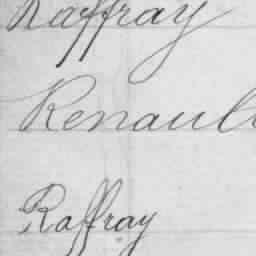 Raffray
Renault
Raffray